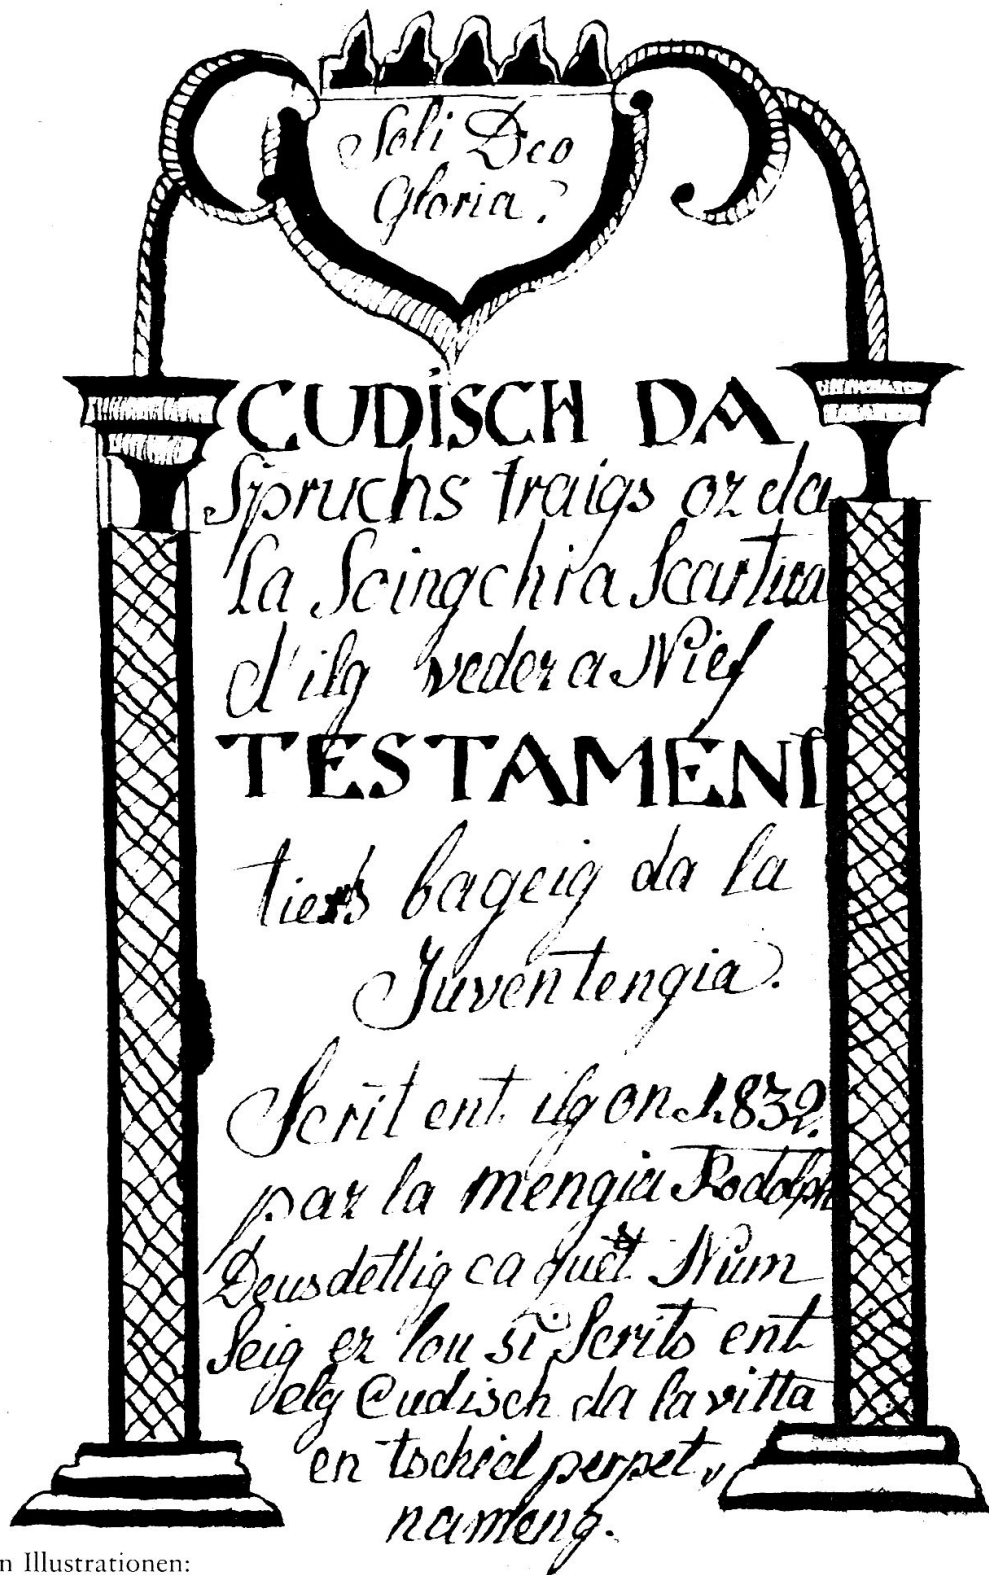 Soli Deo
Gloria.
CUDISCH DA
Spruchs traigs oz da
la Soingchia Scartira
d'ilg veder a Nief
TESTAMENT
tiers bageig da la
Juventengia.
Scrit ent ilg on 1832.
par la mengia Rodolph
Deusdettlig ca quèt Num
Seig er lou si Scrits ent
elg Cudisch da la vitta
en tschiel perpet,
nameng.
n Illustrationen: